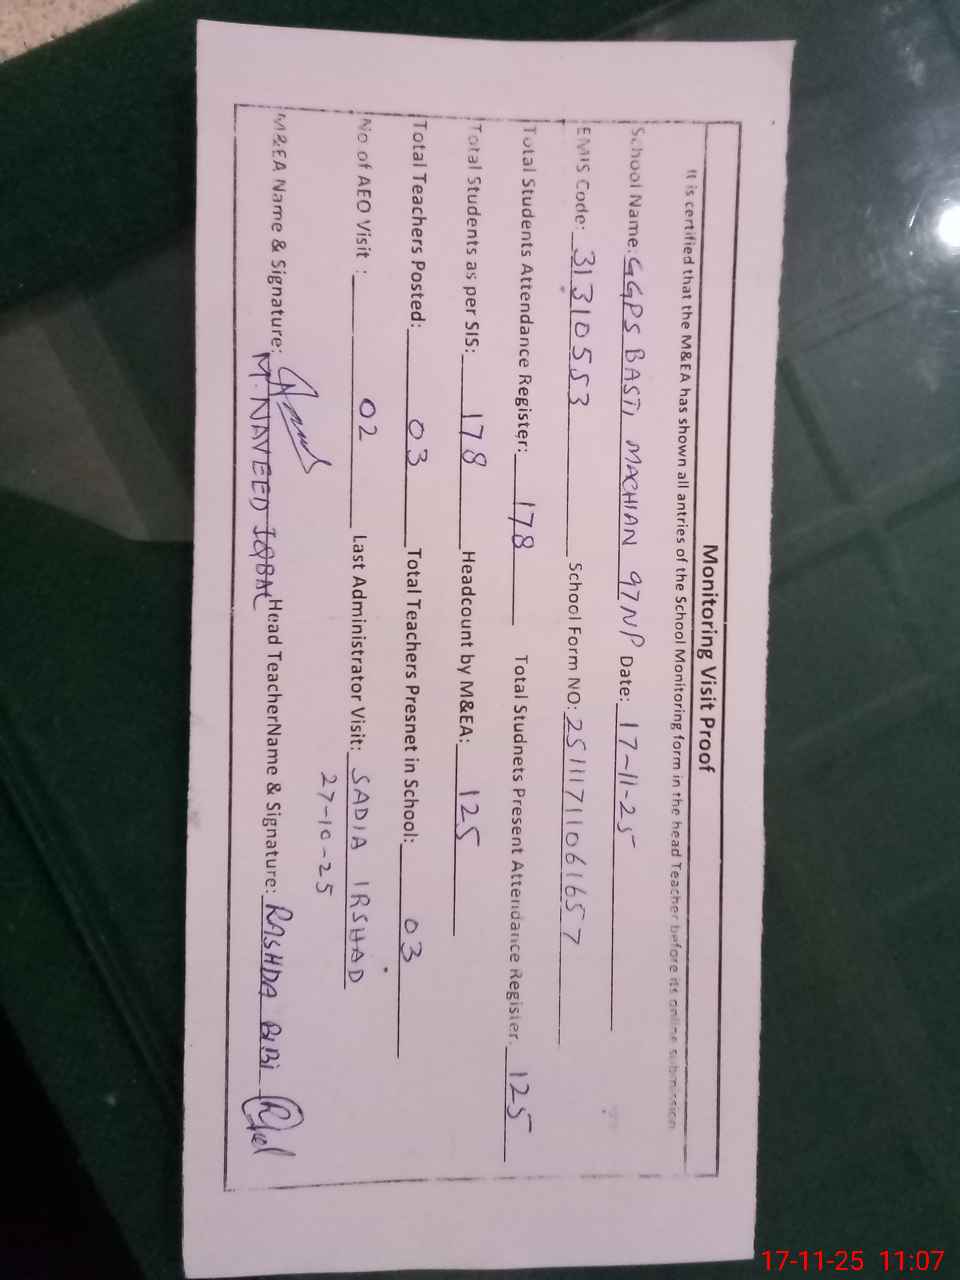 Monitoring Visit Proof
It is certified that the M&EA has shown all antries of the School Monitoring form in the head Teacher before its online submission
School Name: GGPS BASTI MACHIAN 97NP Date: 17-11-25
EMIS Code: 31310553 School Form NO: 25111711061657
Total Students Attendance Register: 178 Total Studnets Present Attendance Register. 125
Total Students as per SIS: 178 Headcount by M&EA: 125
Total Teachers Posted: 03 Total Teachers Presnet in School: 03
No of AEO Visit : 02 Last Administrator Visit: SADIA IRSHAD
27-10-25
M&EA Name & Signature: M. NAVEED IQBAL Head TeacherName & Signature: RASHDA BIBI
17-11-25 11:07